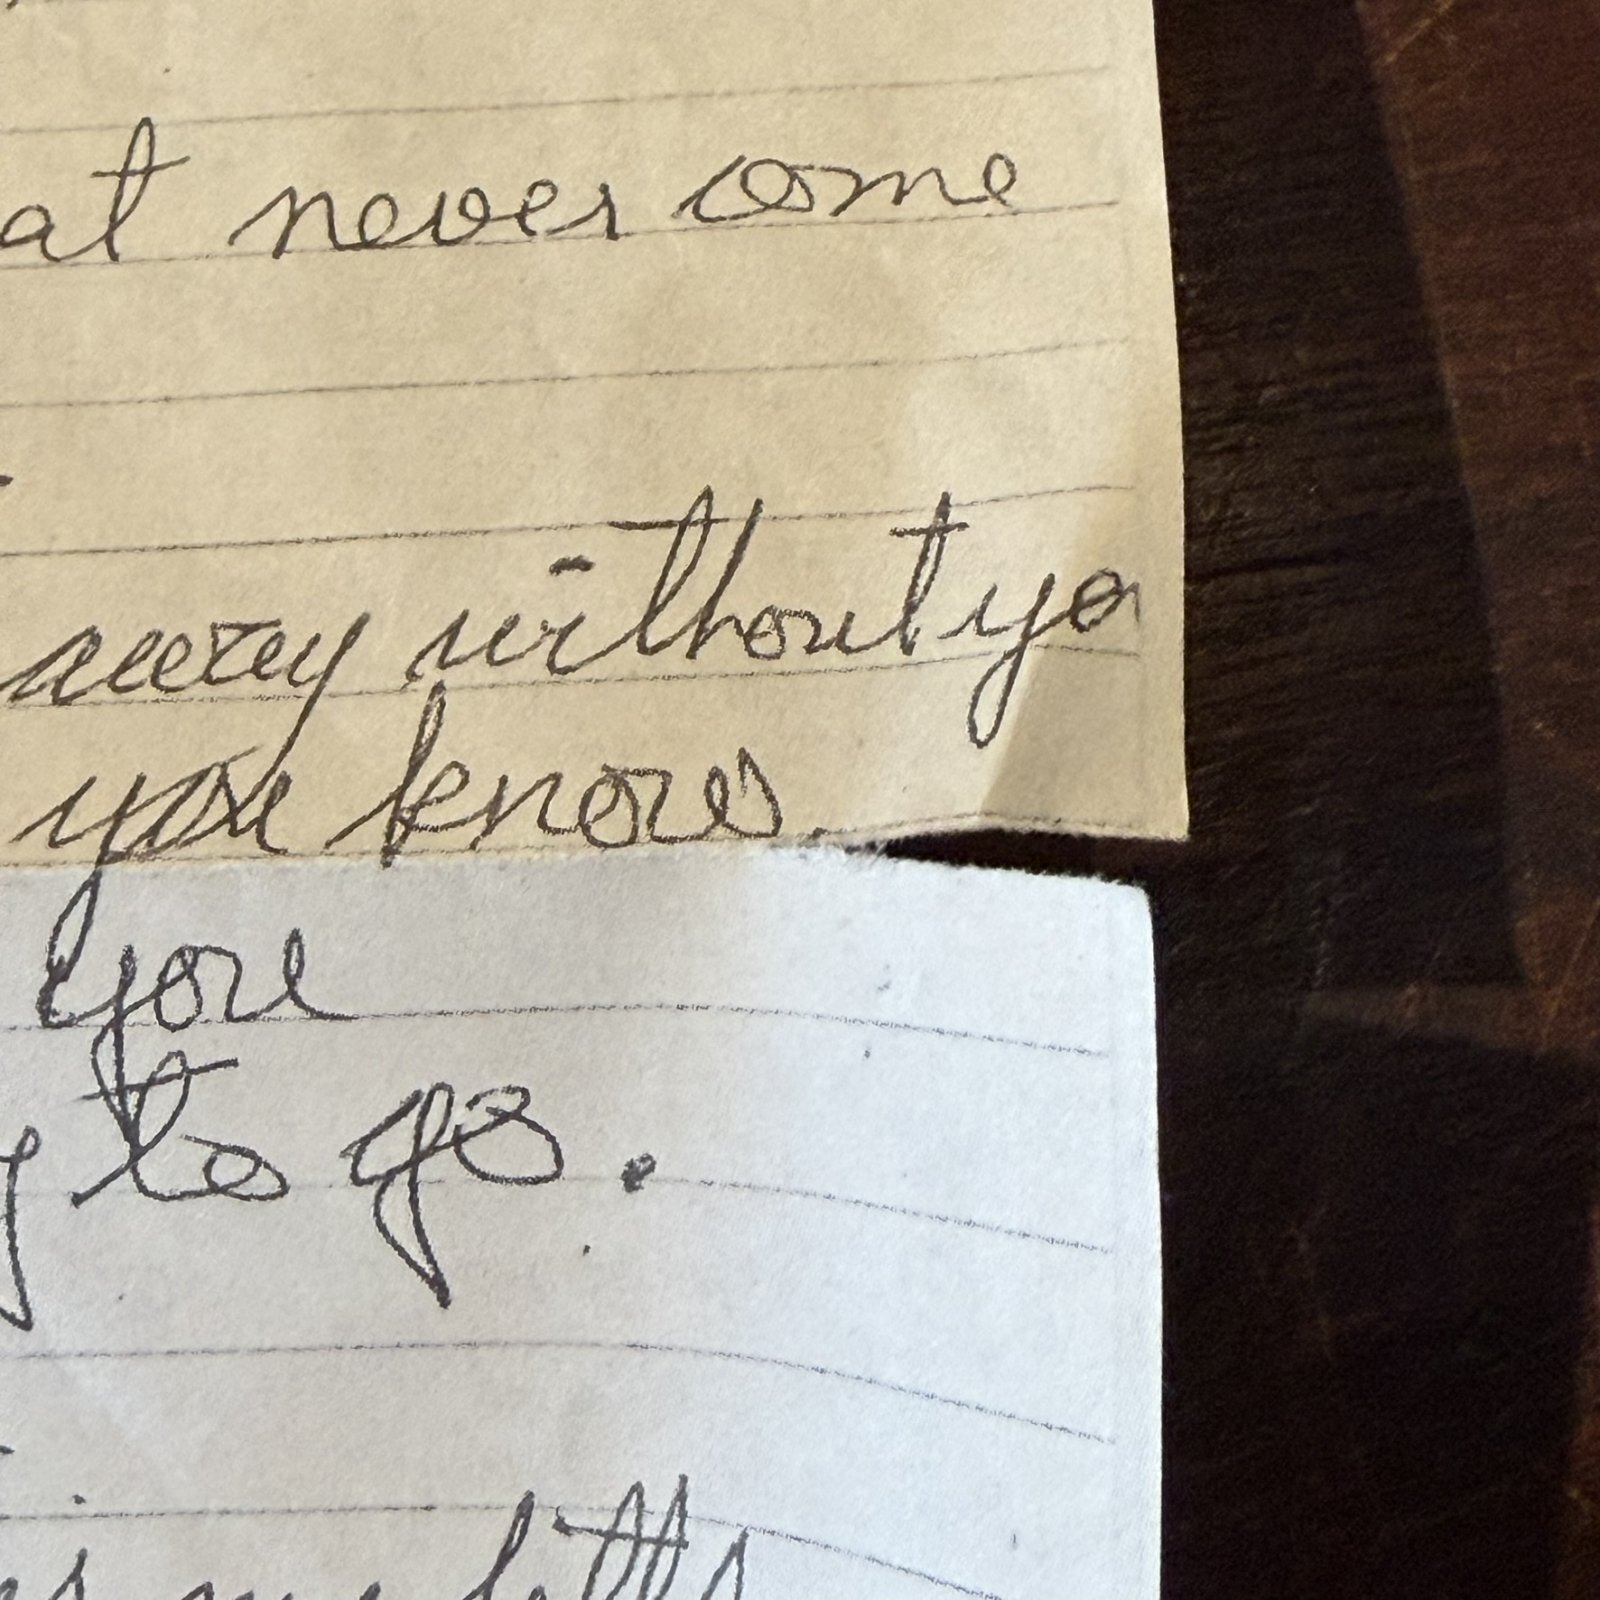 at never come
away without yo
you know.
you
to go.